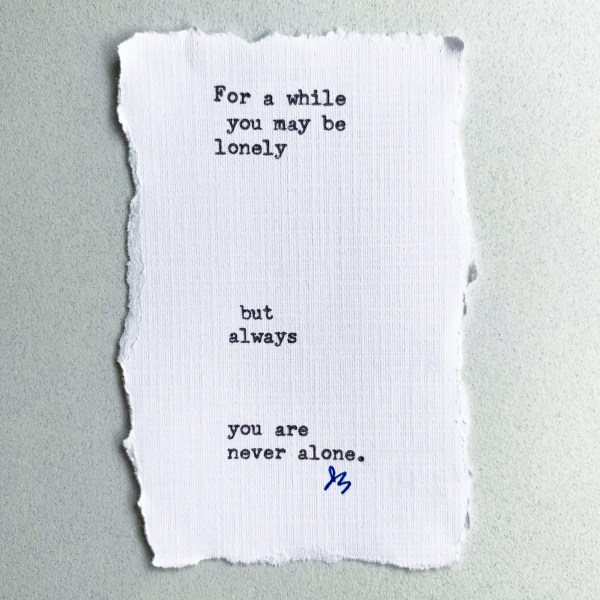 For a while
you may be
lonely
but
always
you are
never alone.